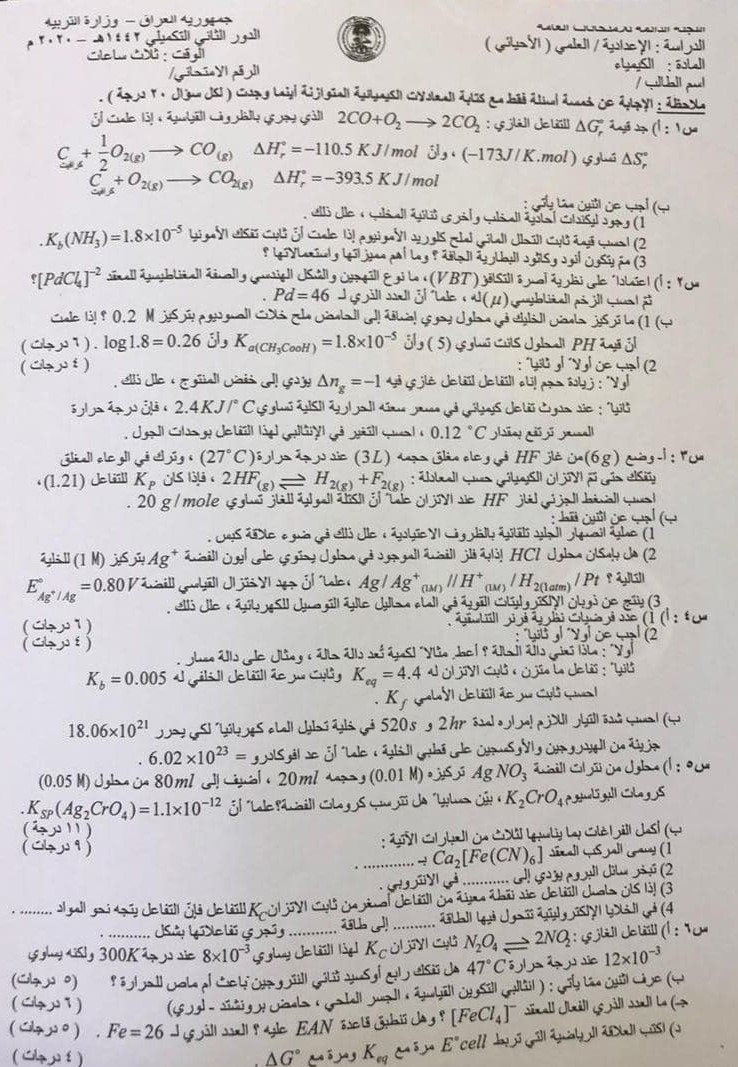 جمهورية العراق - وزارة التربية
الدور الثاني التكميلي ١٤٤٢هـ - ٢٠٢٠ م
الوقت : ثلاث ساعات
الرقم الامتحاني/
اللجنة الدائمة للامتحانات العامة
الدراسة : الإعدادية / العلمي ( الأحيائي )
المادة : الكيمياء
اسم الطالب /
ملاحظة : الإجابة عن خمسة أسئلة فقط مع كتابة المعادلات الكيميائية المتوازنة أينما وجدت ( لكل سؤال ٢٠ درجة ) .
س١ : أ) جد قيمة ΔG°r للتفاعل الغازي : 2CO+O₂ ⟶ 2CO₂ الذي يجري بالظروف القياسية ، إذا علمت أن
ΔS°r تساوي (−173J/K.mol) ، وأن C غرافيت + 1/2 O₂(g) ⟶ CO(g) ΔH°r = −110.5 KJ/mol
C غرافيت + O₂(g) ⟶ CO₂(g) ΔH°r = −393.5 KJ/mol
ب) أجب عن اثنين مما يأتي :
1) وجود ليكندات أحادية المخلب وأخرى ثنائية المخلب ، علل ذلك .
2) احسب قيمة ثابت التحلل المائي لملح كلوريد الامونيوم إذا علمت أن ثابت تفكك الأمونيا Kb(NH₃)=1.8×10⁻⁵ .
3) مم يتكون أنود وكاثود البطارية الجافة ؟ وما أهم مميزاتها واستعمالاتها ؟
س٢ : أ) اعتمادا على نظرية آصرة التكافؤ (VBT) ، ما نوع التهجين والشكل الهندسي والصفة المغناطيسية للمعقد [PdCl₄]⁻² ؟
ثم احسب الزخم المغناطيسي (μ) له ، علماً أن العدد الذري لـ Pd=46 .
ب) 1) ما تركيز حامض الخليك في محلول يحوي إضافة إلى الحامض ملح خلات الصوديوم بتركيز 0.2 M ؟ إذا علمت
أن قيمة PH المحلول كانت تساوي ( 5) وأن Ka(CH₃CooH) = 1.8×10⁻⁵ وأن log1.8 = 0.26 . ( ٦ درجات )
2) أجب عن أولاً أو ثانياً : ( ٤ درجات )
أولاً : زيادة حجم إناء التفاعل لتفاعل غازي فيه Δng = −1 يؤدي إلى خفض المنتوج ، علل ذلك .
ثانياً : عند حدوث تفاعل كيميائي في مسعر سعته الحرارية الكلية تساوي 2.4KJ/°C ، فإن درجة حرارة
المسعر ترتفع بمقدار 0.12 °C ، احسب التغير في الإنثالبي لهذا التفاعل بوحدات الجول .
س٣ : أ- وضع (6g) من غاز HF في وعاء مغلق حجمه (3L) عند درجة حرارة (27°C) ، وترك في الوعاء المغلق
يتفكك حتى تم الاتزان الكيميائي حسب المعادلة : 2HF(g) ⇌ H₂(g) + F₂(g) ، فإذا كان Kp للتفاعل (1.21) ،
احسب الضغط الجزئي لغاز HF عند الاتزان علماً أن الكتلة المولية للغاز تساوي 20 g/mole .
ب) أجب عن اثنين فقط :
1) عملية انصهار الجليد تلقائية بالظروف الاعتيادية ، علل ذلك في ضوء علاقة كبس .
2) هل بإمكان محلول HCl إذابة فلز الفضة الموجود في محلول يحتوي على أيون الفضة Ag⁺ بتركيز (1 M) للخلية
التالية ؟ Ag/Ag⁺(1M)//H⁺(1M)/H₂(1atm)/Pt ، علماً أن جهد الاختزال القياسي للفضة E°Ag⁺/Ag = 0.80V
3) ينتج عن ذوبان الإلكتروليتات القوية في الماء محاليل عالية التوصيل للكهربائية ، علل ذلك .
س٤ : أ) 1) عدد فرضيات نظرية فرنر التناسقية . ( ٦ درجات )
2) أجب عن أولاً أو ثانياً : ( ٤ درجات )
أولاً : ماذا تعني دالة الحالة ؟ أعطِ مثالاً لكمية تُعد دالة حالة ، ومثال على دالة مسار .
ثانياً : تفاعل ما متزن ، ثابت الاتزان له Keq = 4.4 وثابت سرعة التفاعل الخلفي له Kb = 0.005
احسب ثابت سرعة التفاعل الأمامي Kf .
ب) احسب شدة التيار اللازم إمراره لمدة 2hr و 520s في خلية تحليل الماء كهربائياً لكي يحرر 18.06×10²¹
جزيئة من الهيدروجين والأوكسجين على قطبي الخلية ، علماً أن عدد أفوكادرو = 6.02×10²³ .
س٥ : أ) محلول من نترات الفضة AgNO₃ تركيزه (0.01 M) وحجمه 20ml ، أضيف إلى 80ml من محلول (0.05 M)
كرومات البوتاسيوم K₂CrO₄ ، بيّن حسابياً هل تترسب كرومات الفضة؟علماً أن KSP(Ag₂CrO₄)=1.1×10⁻¹² .
( ١١ درجة )
ب) أكمل الفراغات بما يناسبها لثلاث من العبارات الآتية : ( ٩ درجات )
1) يسمى المركب المعقد Ca₂[Fe(CN)₆] بـ ............ .
2) تبخر سائل البروم يؤدي إلى .......... في الإنتروبي .
3) إذا كان حاصل التفاعل عند نقطة معينة من التفاعل أصغر من ثابت الاتزان Kc للتفاعل فإن التفاعل يتجه نحو المواد ........ .
4) في الخلايا الإلكتروليتية تتحول فيها الطاقة .......... إلى طاقة .......... وتجري تفاعلاتها بشكل .......... .
س٦ : أ) للتفاعل الغازي : N₂O₄ ⇌ 2NO₂ ثابت الاتزان Kc لهذا التفاعل يساوي 8×10⁻³ عند درجة 300K ولكنه يساوي
12×10⁻³ عند درجة حرارة 47°C هل تفكك رابع أوكسيد ثنائي النتروجين باعث أم ماص للحرارة ؟ (٥ درجات)
ب) عرف اثنين مما يأتي : ( إنثالبي التكوين القياسية ، الجسر الملحي ، حامض برونشتد - لوري) ( ٦ درجات )
جـ) ما العدد الذري الفعال للمعقد [FeCl₄]⁻ ؟ وهل تنطبق قاعدة EAN عليه ؟ العدد الذري لـ Fe = 26 . ( ٥ درجات )
د) اكتب العلاقة الرياضية التي تربط E°cell مرة مع Keq ومرة مع ΔG° . ( ٤ درجات )